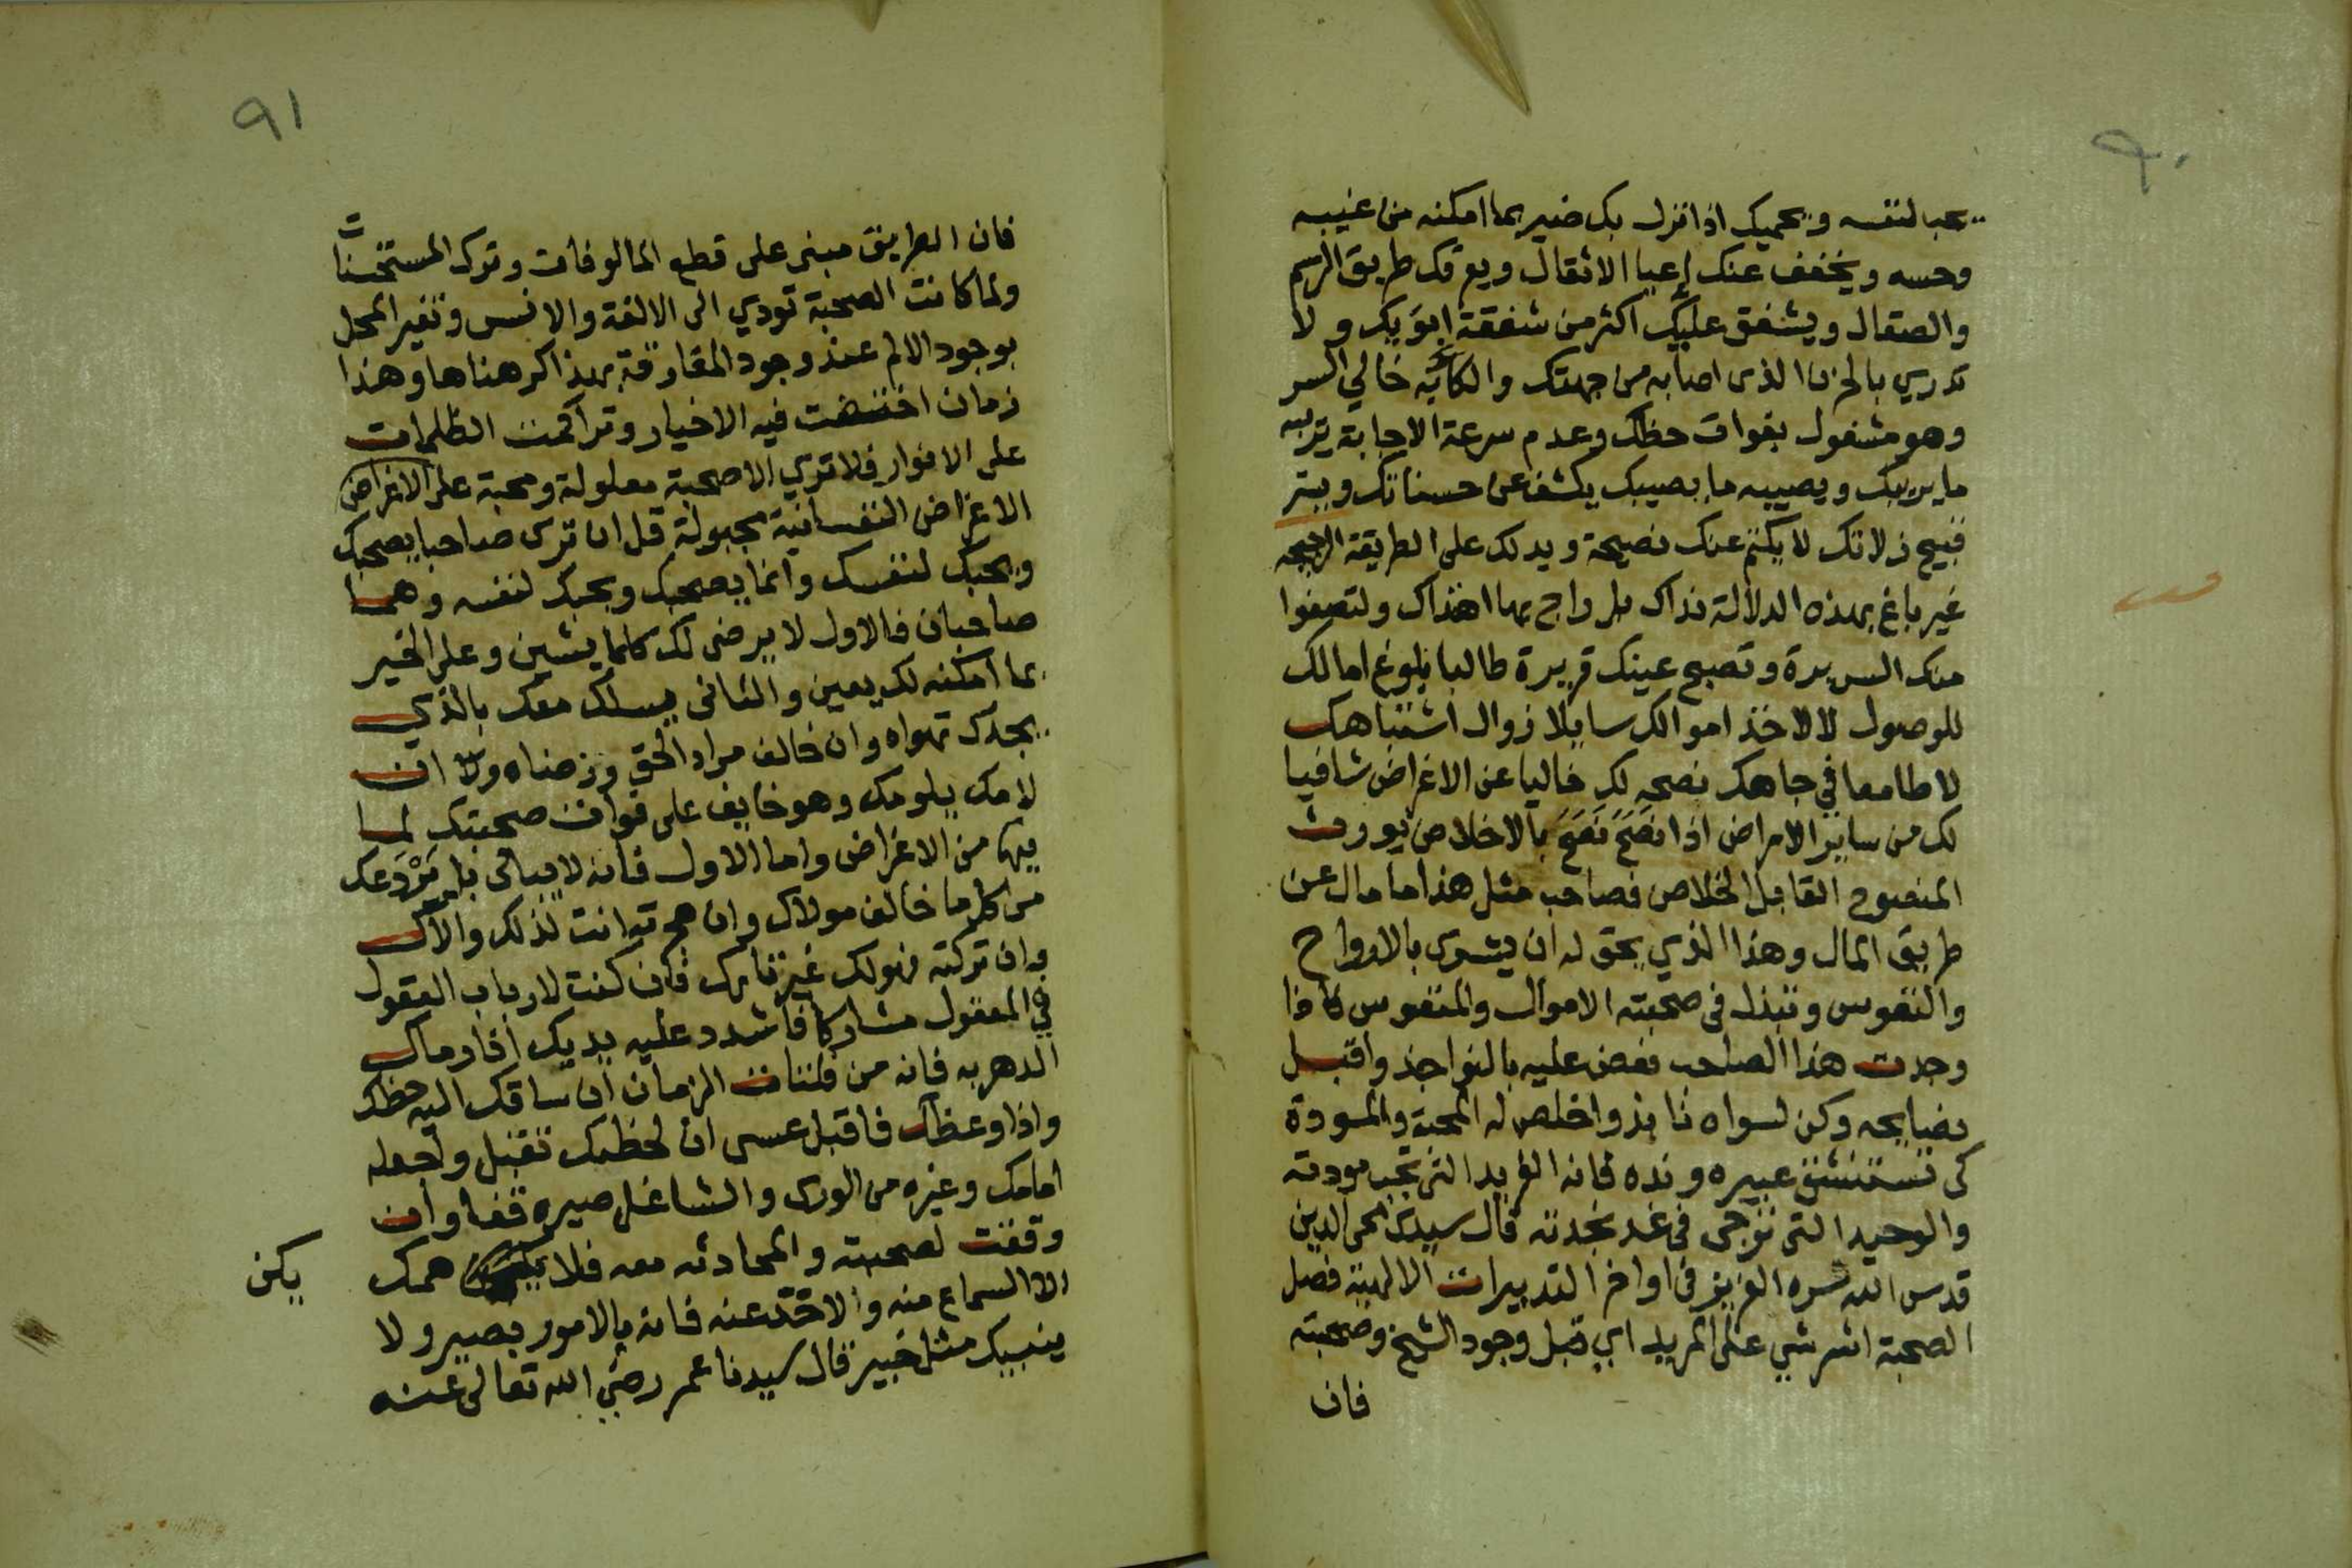 ٩٠
يحب لنفسه ويحميك اذا نزل بك ضير بما امكنه من غيبه
وحسه ويخفف عنك اعبا الاثقال ويعرفك طريق الرسم
والصقال ويشفق عليك اكثر من شفقة ابويك ولا
تدري بالحزن الذى اصابه من جهتك والكآبه خالي السر
وهو مشغول بفوات حظك وعدم سرعة الاجابة يريبه
ما يريبك ويصيبه ما يصيبك يكشف عن حسناتك ويستر
قبيح زلاتك لا يكتم عنك نصيحة ويدلك على الطريقة الرجيحه
غير باغ بهذه الدلالة نداك بل راج بها اهتداك ولتصفوا
منك السريرة وتصبح عينك قريرة طالبا بلوغ امالك
للوصول لا لاخذ اموالك سايلا زوال اشتباهك
لا طامعا في جاهك نصحه لك خاليا عن الاغراض شافيا
لك من ساير الامراض اذا نصح نصح بالاخلاص يورث
المنصوح القابل الخلاص فصاحب مثل هذا ما مال عن
طريق المال وهذا الذي يحق له ان يشترى بالارواح
والنفوس وتبذل في صحبته الاموال والمنفوس فاذا
وجدت هذا الصاحب فعض عليه بالنواجذ واقبل
نصايحه وكن لسواه نابذ واخلص له المحبة والمودة
كى تستنشق عبيره ونده فانه الفريد التى تجب مودته
والوحيد التى ترجى فى غد نجدته قال سيدى محى الدين
قدس الله سره العزيز فى اواخر التدبيرات الالهية فصل
الصحبة اشر شي على المريد اي قبل وجود الشيخ وصحبته
فان
٩١
فان الطريق مبنى على قطع المالوفات وترك المستحسنات
ولما كانت الصحبة تودي الى الالفة والانس وتغير المحل
بوجود الالم عند وجود المفارقة بهذا كرهناها وهذا
زمان اختفت فيه الاخيار وتراكمت الظلمات
على الانوار فلا تري الا صحبة معلولة ومحبة على الاغراض
الاغراض النفسانية مجبولة قل ان ترى صاحبا يصحبك
ويحبك لنفسك وانما يصحبك ويحبك لنفسه وهما
صاحبان فالاول لا يرضى لك كلما يشين وعلى الخير
بما امكنه لك يعين والثانى يسلك معك بالذي
يجدك تهواه وان خالف مراد الحق ورضاه ولا ان
لامك يلومك وهو خايف على فوات صحبتك لما
فيها من الاغراض واما الاول فانه لا يبالى بل يردعك
من كل ما خالف مولاك وان هجرته انت لذلك والاك
وان تركته فهو لك غير تارك فان كنت لارباب العقول
في المعقول مشاركا فاشدد عليه يديك اذا رماك
الدهر به فانه من فلتات الزمان ان ساقك اليه حظك
واذا وعظك فاقبل عسى ان لحظك تقبل واجعله
امامك وغيره من الورى والشاغل صيره قفا وان
وقفت لصحبته والمحادثه معه فلا همك
يكن
الا السماع منه والاخذ عنه فانه بالامور بصير ولا
ينبيك مثل خبير قال سيدنا عمر رضي الله تعالى عنه